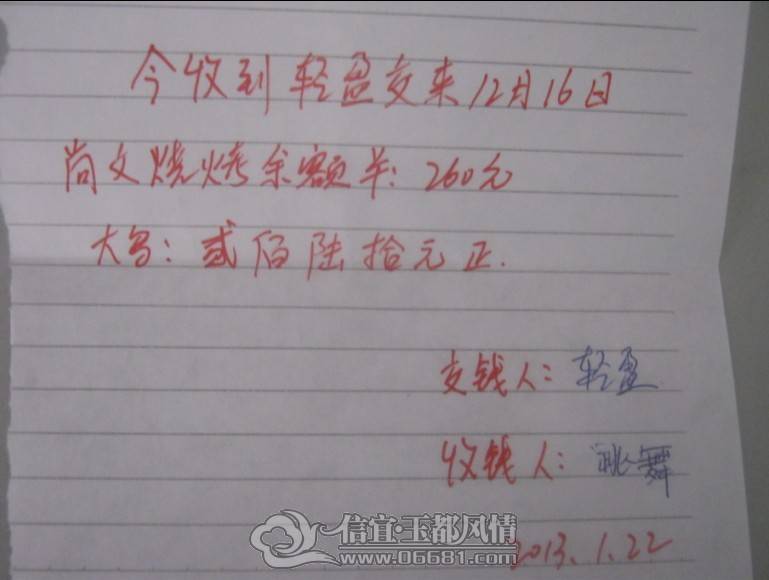 今收到轻盈交来12月16日
尚文烧烤余额羊:260元
大写:贰佰陆拾元正.
交钱人:轻盈
收钱人:跳舞
2013.1.22
信宜·玉都风情
www.06681.com